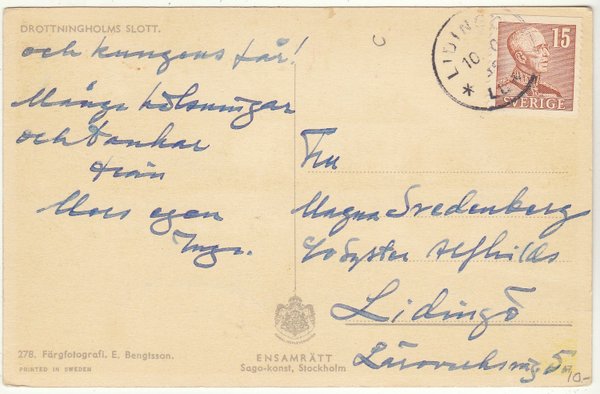 DROTTNINGHOLMS SLOTT.
och kungens får!
Många hälsningar
och tankar
från
Mors egen
Inga.
LIDINGÖ
10
15
SVERIGE
Fru
Magna Svedenberg
c/o Syster Alfhilds
Lidingö
5
278. Färgfotografi. E. Bengtsson.
PRINTED IN SWEDEN
ENSAMRÄTT
Sago-konst, Stockholm
10-